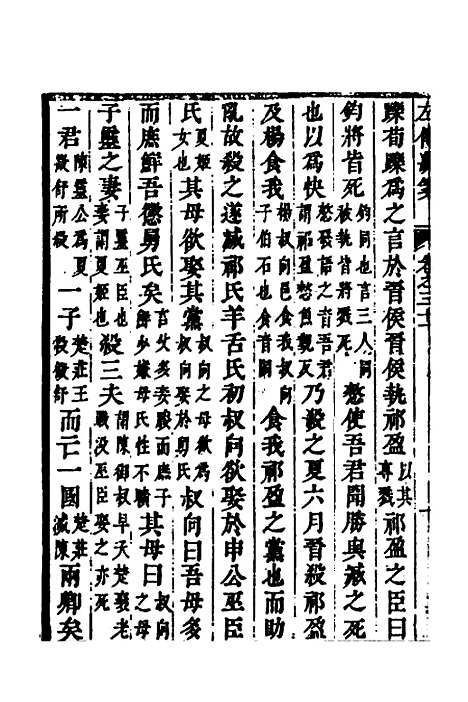 躒荀躒爲之言於晉侯晉侯執祁盈以其專戮祁盈之臣曰
鈞將皆死鈞同也言三人同被執皆將戮死憖使吾君聞勝與臧之死
也以爲快憖發語之音吾君謂祁盈憖魚覲反乃殺之夏六月晉殺祁盈
及楊食我楊叔向邑食我叔向子伯石也食音嗣食我祁盈之黨也而助
亂故殺之遂滅祁氏羊舌氏初叔向欲娶於申公巫臣
氏夏姬女也其母欲娶其黨叔向之母欲爲叔向娶於舅氏叔向曰吾母多
而庶鮮吾懲舅氏矣言父多妾媵而庶子鮮少嫌母氏性不曠其母曰叔向之母
子靈之妻子靈巫臣也妻謂夏姬也殺三夫謂陳御叔早夭楚襄老戰沒巫臣娶之亦死
一君陳靈公爲夏徵舒所殺一子楚莊王殺徵舒而亡一國楚莊滅陳兩卿矣